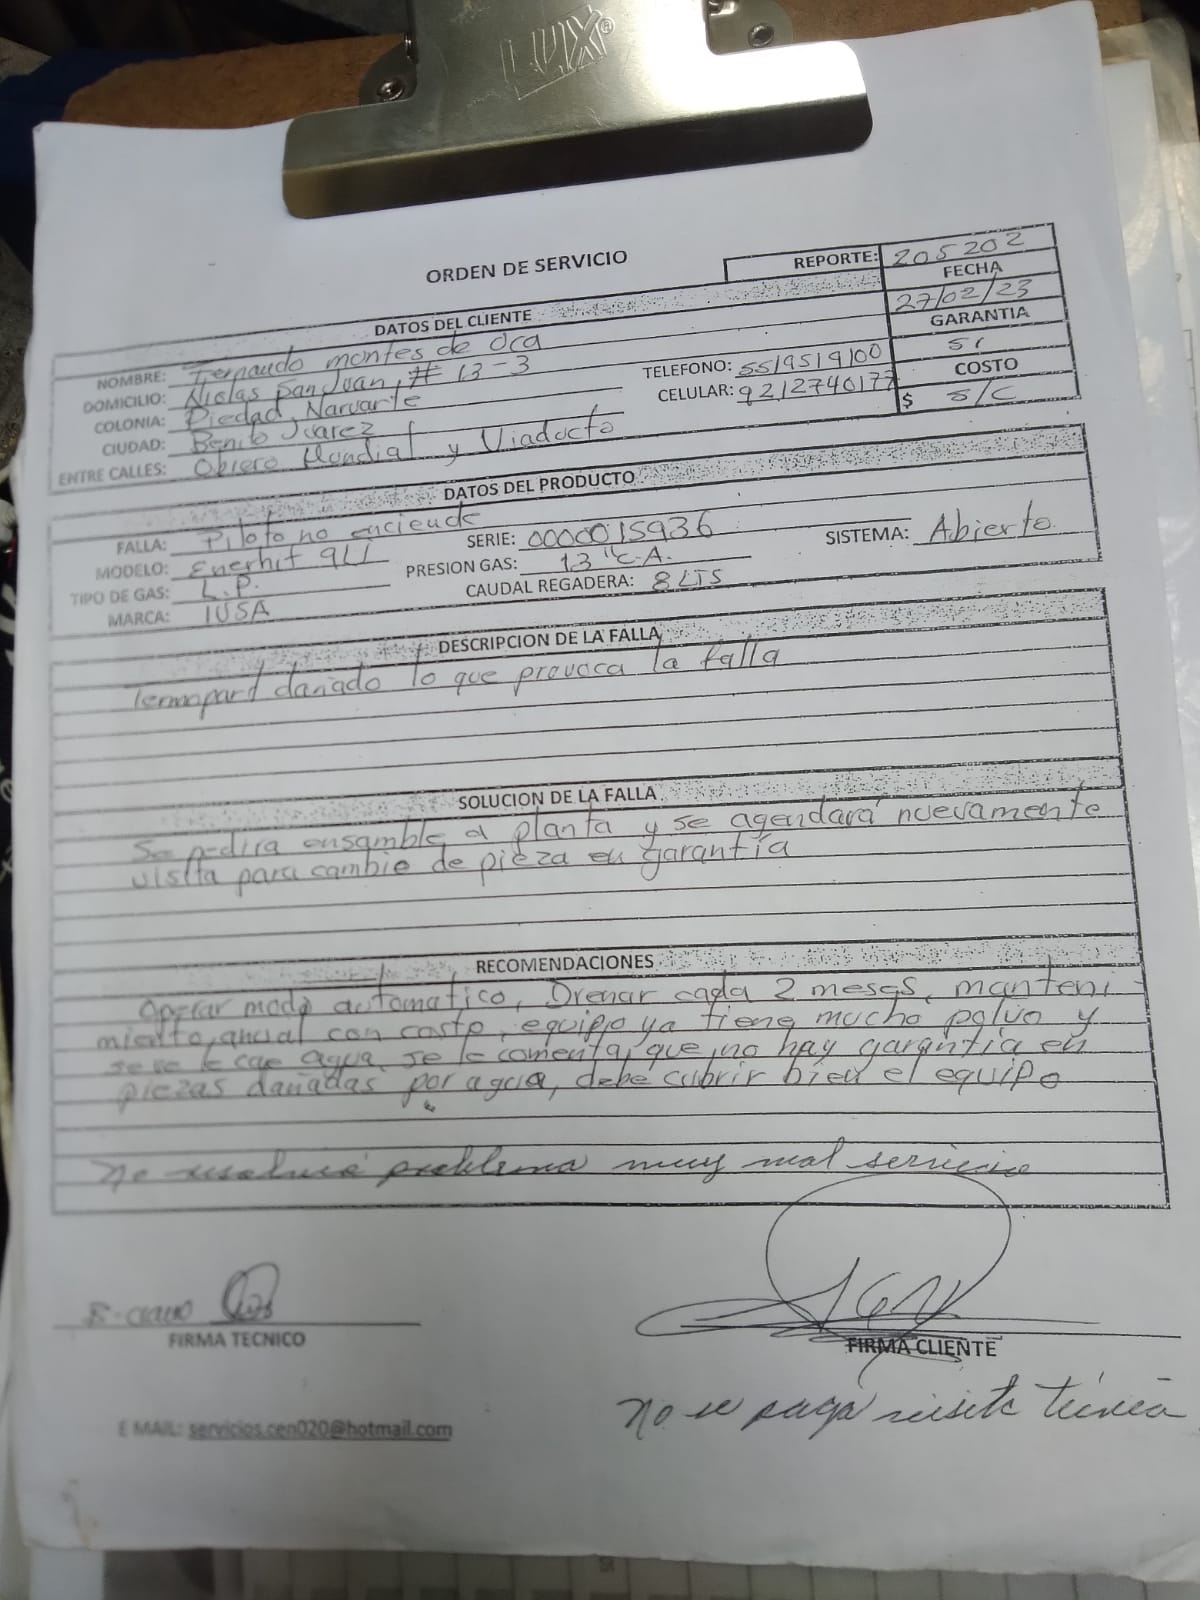 LUX®
ORDEN DE SERVICIO
REPORTE: 205202
FECHA
27/02/23
GARANTIA
SI
COSTO
$ S/C
DATOS DEL CLIENTE
NOMBRE: Fernando montes de Oca
DOMICILIO: Nicolas San Juan, # 13-3
COLONIA: Piedad Narvarte
CIUDAD: Benito Juarez
ENTRE CALLES: Obrero Mundial y Viaducto
TELEFONO: 5519519100
CELULAR: 9212740177
DATOS DEL PRODUCTO
FALLA: Piloto no enciende
MODELO: Enerhit 9LI
TIPO DE GAS: L.P.
MARCA: IUSA
SERIE: 0000015936
PRESION GAS: 13 "C.A.
CAUDAL REGADERA: 8 LTS
SISTEMA: Abierto.
DESCRIPCION DE LA FALLA
Termopart dañado lo que provoca la falla
SOLUCION DE LA FALLA
Se pedira ensamble a planta y se agendará nuevamente
visita para cambio de pieza en garantía
RECOMENDACIONES
Operar modo automatico, Drenar cada 2 meses, manteni
miento anual con costo, equipo ya tiene mucho polvo y
se le cae agua, se le comenta que no hay garantía en
piezas dañadas por agua, debe cubrir bien el equipo
No resolvió problema muy mal servicio
FIRMA TECNICO
FIRMA CLIENTE
E MAIL: servicios.cen020@hotmail.com
No se paga visita técnica